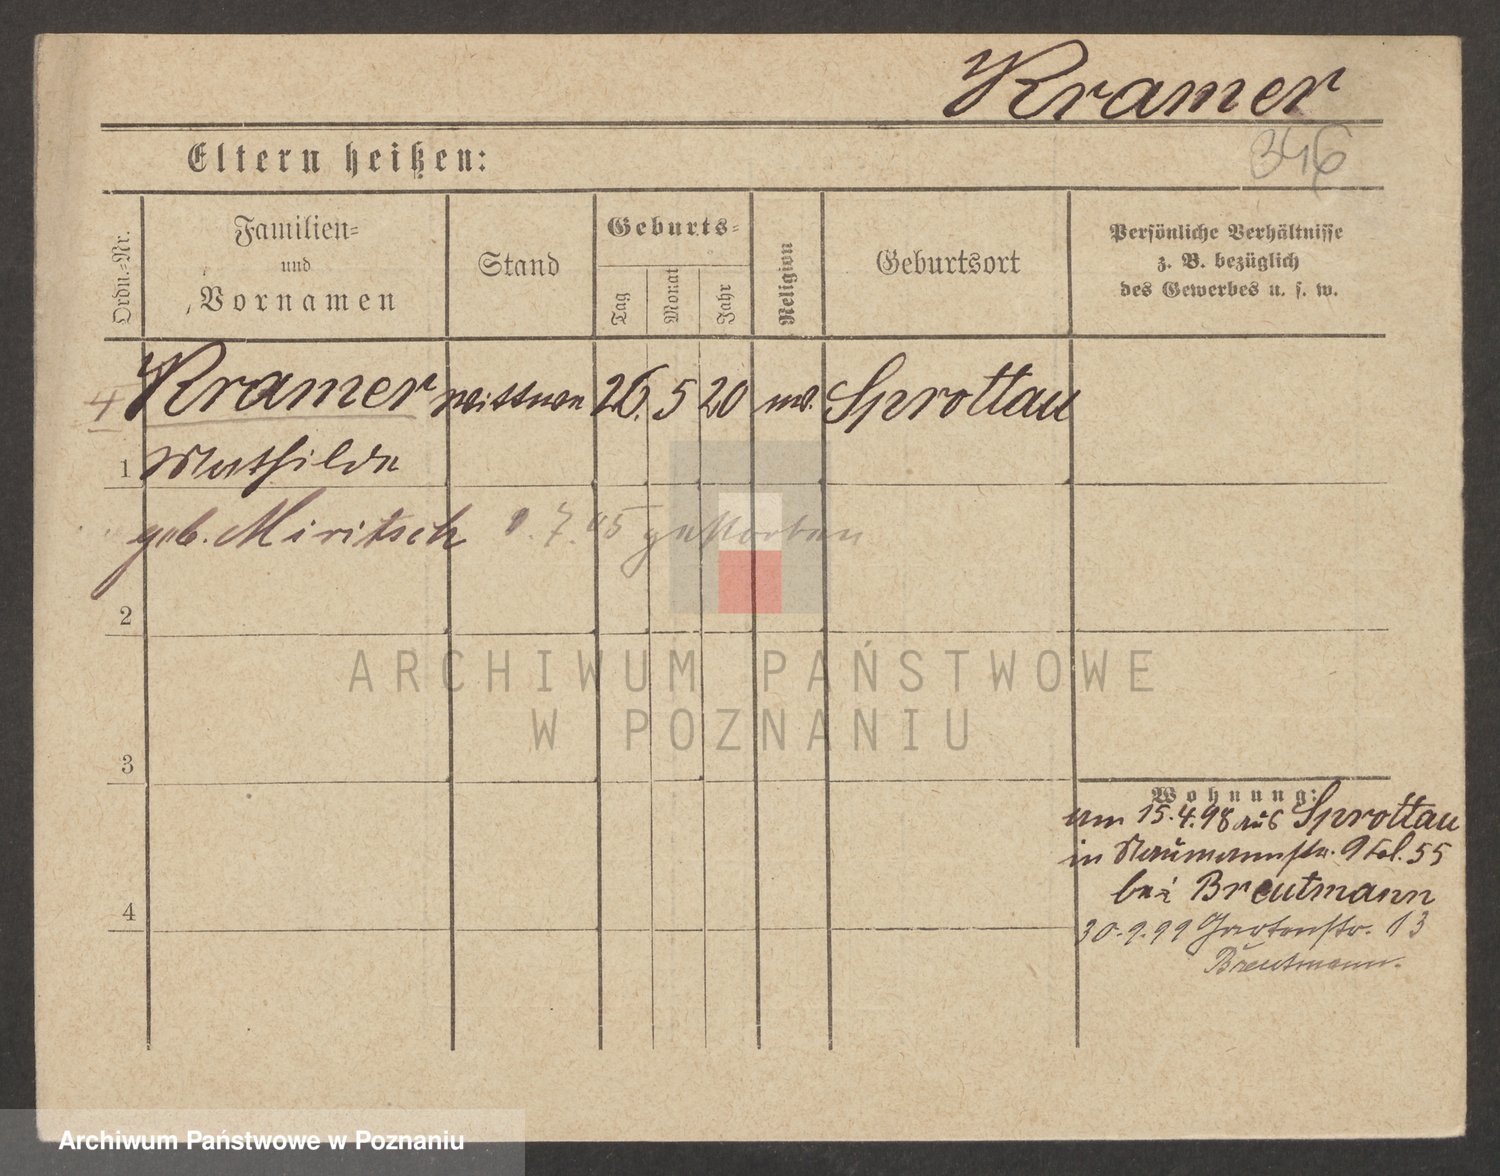 Kramer
346
Eltern heißen:
Ordn.-Nr.
Familien-
und
Vornamen
Stand
Geburts-
Tag
Monat
Jahr
Religion
Geburtsort
Persönliche Verhältnisse
z. B. bezüglich
des Gewerbes u. s. w.
Kramer Wittwe 26. 5 20 Sprottau
1 Mathilde
geb. Miritsch 7. 05 gestorben
2
ARCHIWUM PAŃSTWOWE
W POZNANIU
3
Wohnung:
am 15.4.98 aus Sprottau
in Naumannstr. 9 55
bei Breutmann
4
30.9.99 Gartenstr. 13
Breutmann.
Archiwum Państwowe w Poznaniu